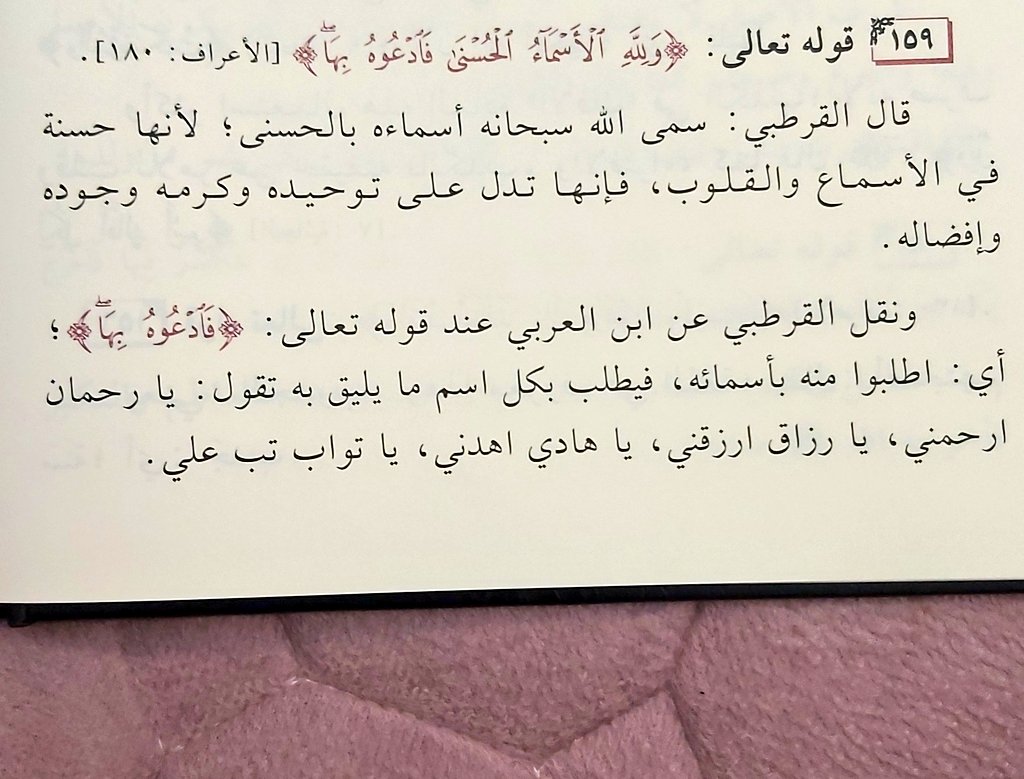 ١٥٩ قوله تعالى: ﴿وَلِلَّهِ ٱلْأَسْمَآءُ ٱلْحُسْنَىٰ فَٱدْعُوهُ بِهَاۖ﴾ [الأعراف: ١٨٠].
قال القرطبي: سمى الله سبحانه أسماءه بالحسنى؛ لأنها حسنة
في الأسماع والقلوب، فإنها تدل على توحيده وكرمه وجوده
وإفضاله.
ونقل القرطبي عن ابن العربي عند قوله تعالى: ﴿فَٱدْعُوهُ بِهَاۖ﴾؛
أي: اطلبوا منه بأسمائه، فيطلب بكل اسم ما يليق به تقول: يا رحمان
ارحمني، يا رزاق ارزقني، يا هادي اهدني، يا تواب تب علي.